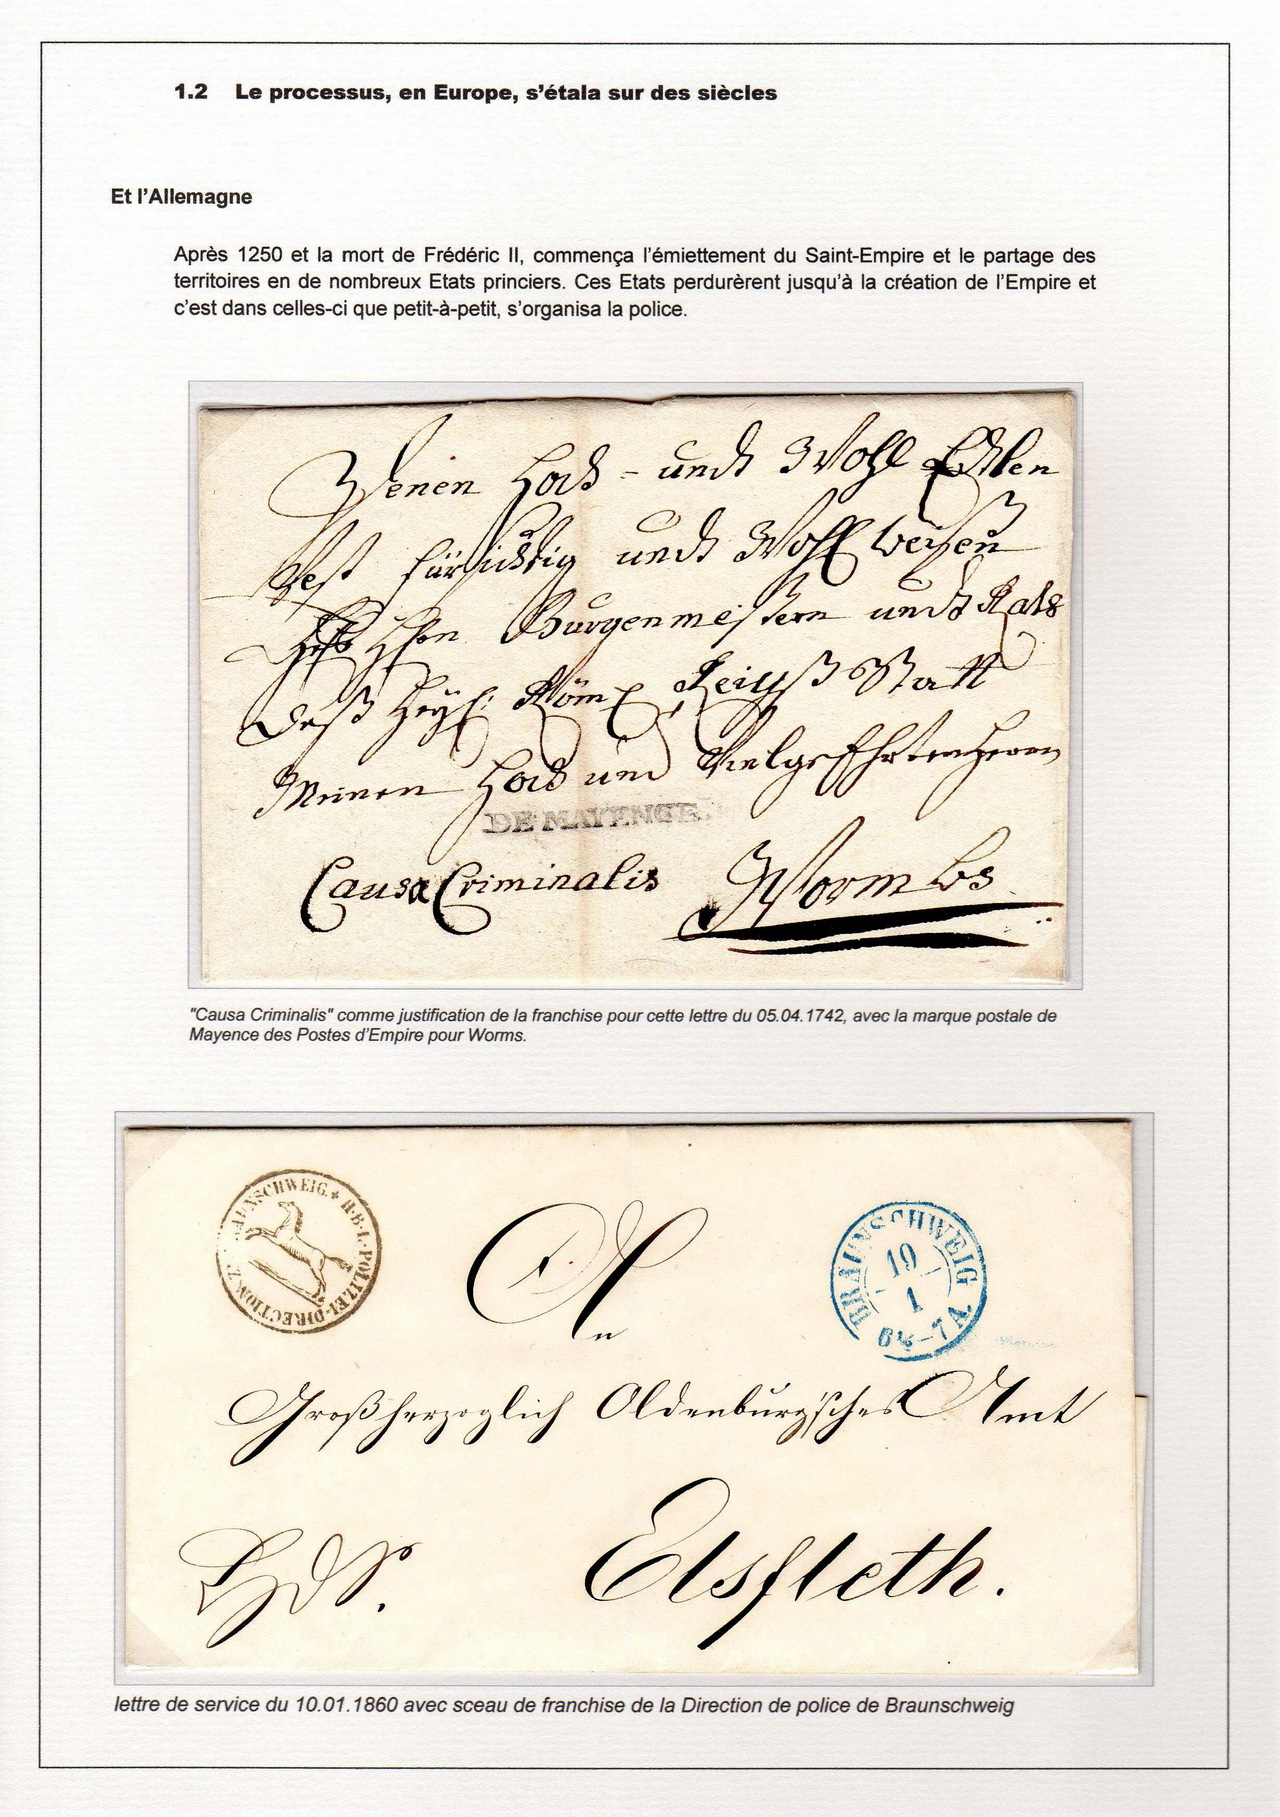 1.2 Le processus, en Europe, s'étala sur des siècles
Et l'Allemagne
Après 1250 et la mort de Frédéric II, commença l'émiettement du Saint-Empire et le partage des
territoires en de nombreux Etats princiers. Ces Etats perdurèrent jusqu'à la création de l'Empire et
c'est dans celles-ci que petit-à-petit, s'organisa la police.
Denen Hoch - undt Wohl Edlen
Vest fürsichtig undt Wohl weisen
Burgenmeistern undt Rats
deß Heyl: Röm Statt
Meinen Hoch und Herrn
DE MAYENCE.
Causa Criminalis Wormbs
"Causa Criminalis" comme justification de la franchise pour cette lettre du 05.04.1742, avec la marque postale de
Mayence des Postes d'Empire pour Worms.
H·B·L·POLIZEI-DIRECTION
BRAUNSCHWEIG
10
1
6½-7 A.
An
Großherzoglich Oldenburg'sches Amt
HdS.
Elsfleth.
lettre de service du 10.01.1860 avec sceau de franchise de la Direction de police de Braunschweig